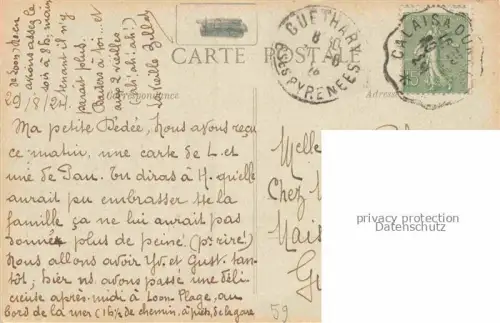 de Loon. Msen
avions assez le
soir à 8h, main-
tenant il n'y
paraît plus.
Baisers à toi... et
aux 2 vieilles
ah! ah! ah!
9/8/24.
CARTE POSTALE
Correspondance
Adresse
GUETHARY
BSSES PYRENEES
CALAIS A
15
Ma petite Dédée, nous avons reçu
ce matin, une carte de L. et
une de Pau. Tu diras à H. qu'elle
aurait pu embrasser tte la
famille ça ne lui aurait pas
donné plus de peine! (pr rire!)
Nous allons avoir Yv. et Gust. tan-
tôt; hier ns. avons passé une déli-
cieuse après-midi à Loon-Plage, au
bord de la mer (1h½ de chemin, à pieds, de la gare
Melle
Chez
Mais
59
privacy protection
Datenschutz